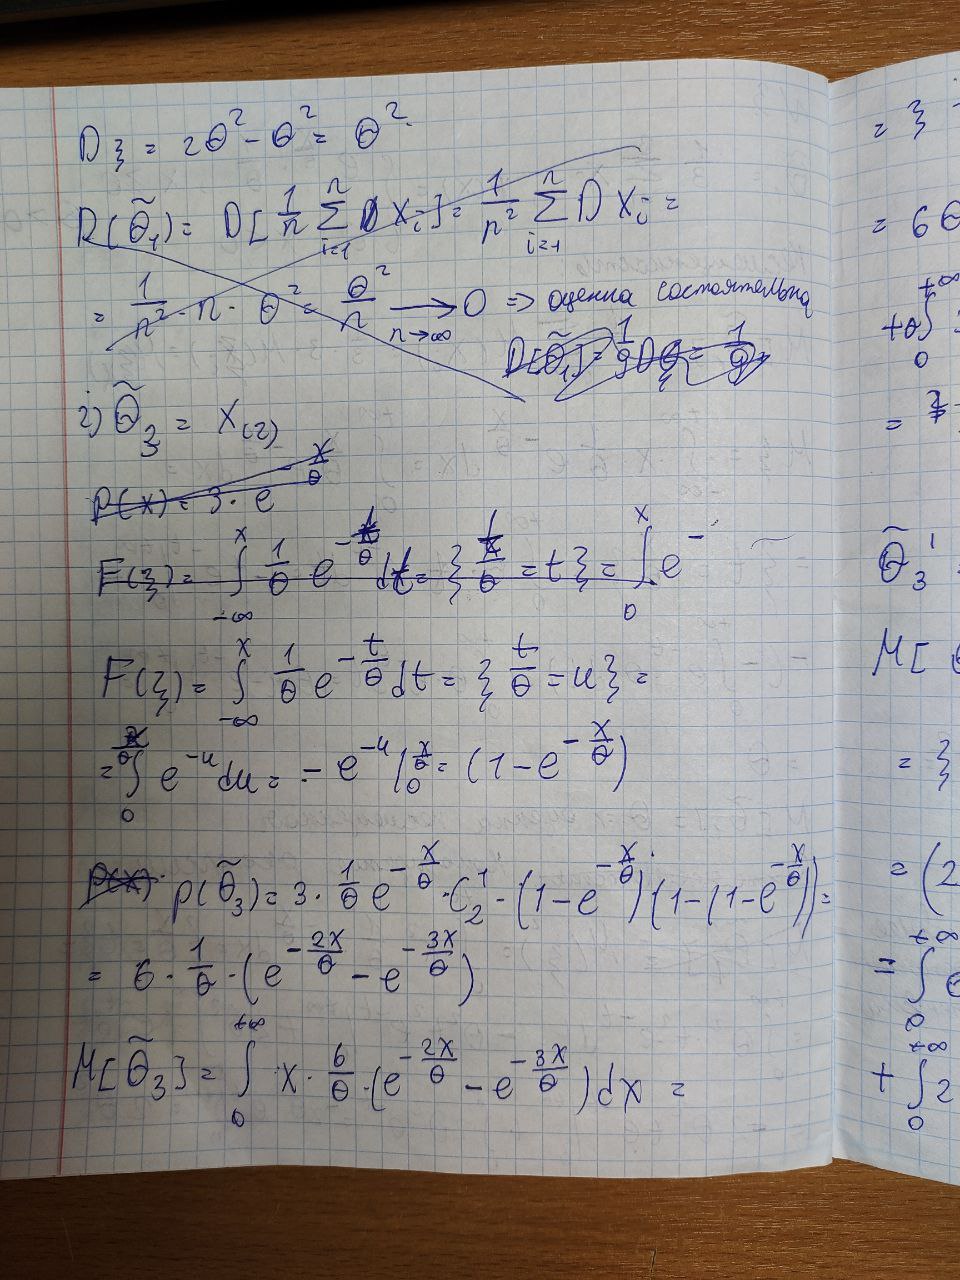 Dξ = 2θ² - θ² = θ².
D(θ̃₁) = D[1/n Σᵢ₌₁ⁿ Xᵢ] = 1/n² Σᵢ₌₁ⁿ D Xᵢ =
= 1/n² · n · θ² = θ²/n → 0 n→∞ => оценка состоятельна
D[θ̃₁] = 1/9 Dξ = 1/9
2) θ̃₃ = X₍₂₎
p(x) = 3 · e^(-x/θ)
F(ξ) = ∫_{-∞}^{x} 1/θ · e^(-t/θ) dt = {t/θ = t} = ∫_{0}^{x} e^-
F(ξ) = ∫_{-∞}^{x} 1/θ e^(-t/θ) dt = {t/θ = u} =
= ∫_{0}^{x/θ} e^(-u) du = - e^(-u) |_{0}^{x/θ} = (1 - e^(-x/θ))
p(x) p(θ̃₃) = 3 · 1/θ e^(-x/θ) · C₂¹ · (1 - e^(-x/θ)) (1 - (1 - e^(-x/θ))) =
= 6 · 1/θ · (e^(-2x/θ) - e^(-3x/θ))
M[θ̃₃] = ∫_{0}^{+∞} x · 6/θ · (e^(-2x/θ) - e^(-3x/θ)) dx =
= {
= 6θ
+θ∫_{0}^{+∞}
=
θ̃₃' =
M[
= {
= (2
= ∫_{0}^{+∞} θ
+ ∫_{0}^{+∞} 2